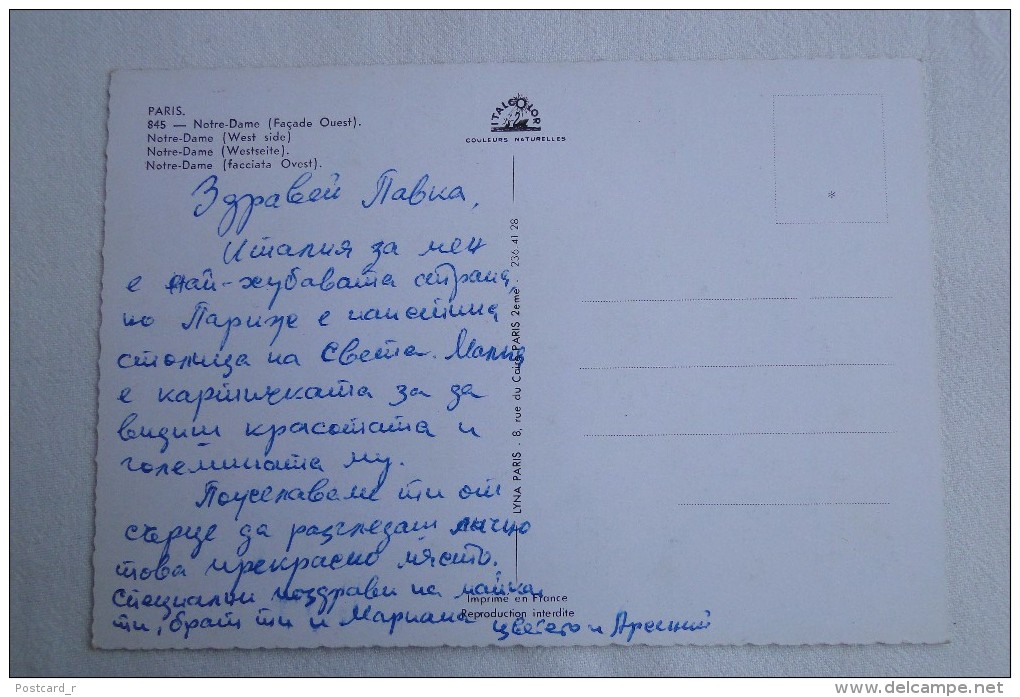 PARIS.
845 — Notre-Dame (Façade Ouest).
Notre-Dame (West side)
Notre-Dame (Westseite).
Notre-Dame (facciata Ovest).
ITALCOLOR
COULEURS NATURELLES
Здравей Павка,
Италия за мен
е най-хубавата страна,
но Париж е наистина
столица на Света. Малка
е картичката за да
видиш красотата и
големината му.
Пожелавам ти от
сърце да разгледаш лично
това прекрасно място.
Специални поздрави на майка
ти, брат ти и Мариана
Цветето и Арсений
LYNA PARIS . 8, rue du Caire PARIS 2eme . 236 41 28
Imprime en France
Reproduction interdite
*
Postcard_r
www.delcampe.net